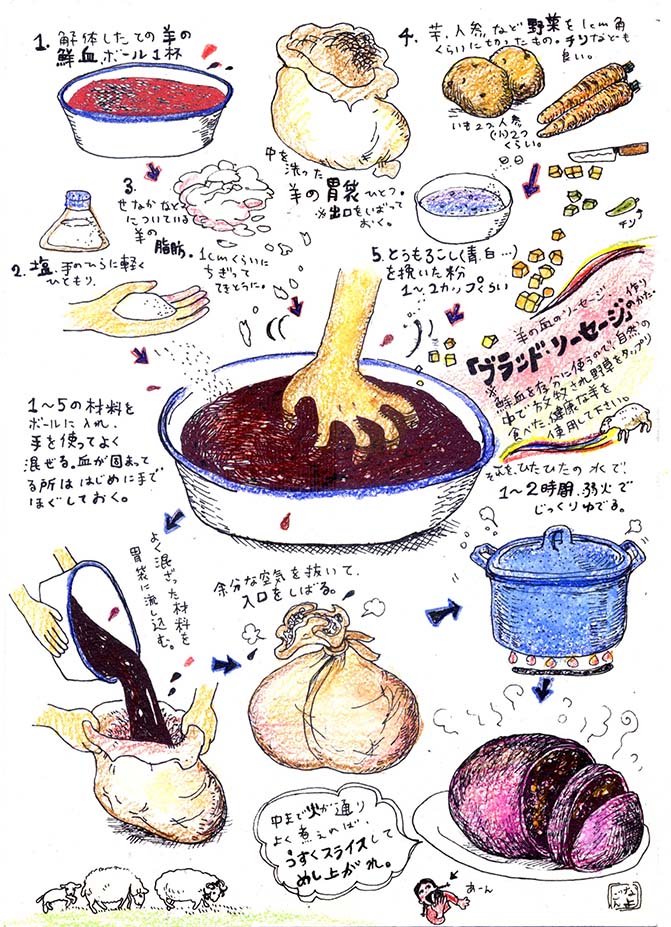 1. 解体したての羊の
鮮血ボール1杯
中を洗った
羊の胃袋ひとつ。
※出口をしばって
おく。
4. 芋、人参、など野菜を1cm角
くらいに切ったもの。チリなども
良い。
いも2つ、人参
(小)2つ
くらい。
チリ
3.
せなかなど
についている
羊の
脂肪。
1cmくらいに
ちぎって
てきとうに。
2. 塩.手のひらに軽く
ひともり。
5. とうもろこし(青白…)
を挽いた粉
1〜2カップくらい
羊の血のソーセージ
「ブランド・ソーセージ」作り
のかた
※鮮血を存分に使うので、自然の
中で放牧され野草をタップリ
食べた、健康な羊を
使用して下さい。
1〜5の材料を
ボールに入れ、
手を使ってよく
混ぜる。血が固まって
る所ははじめにまで
ほぐしておく。
よく混ざった材料を
胃袋に流し込む。
余分な空気を抜いて、
入口をしばる。
それを、ひたひたの水で!
1〜2時間、弱火で
じっくりゆでる。
中まで火が通り
よく煮えれば、
うすくスライスして
めし上がれ。
あーん